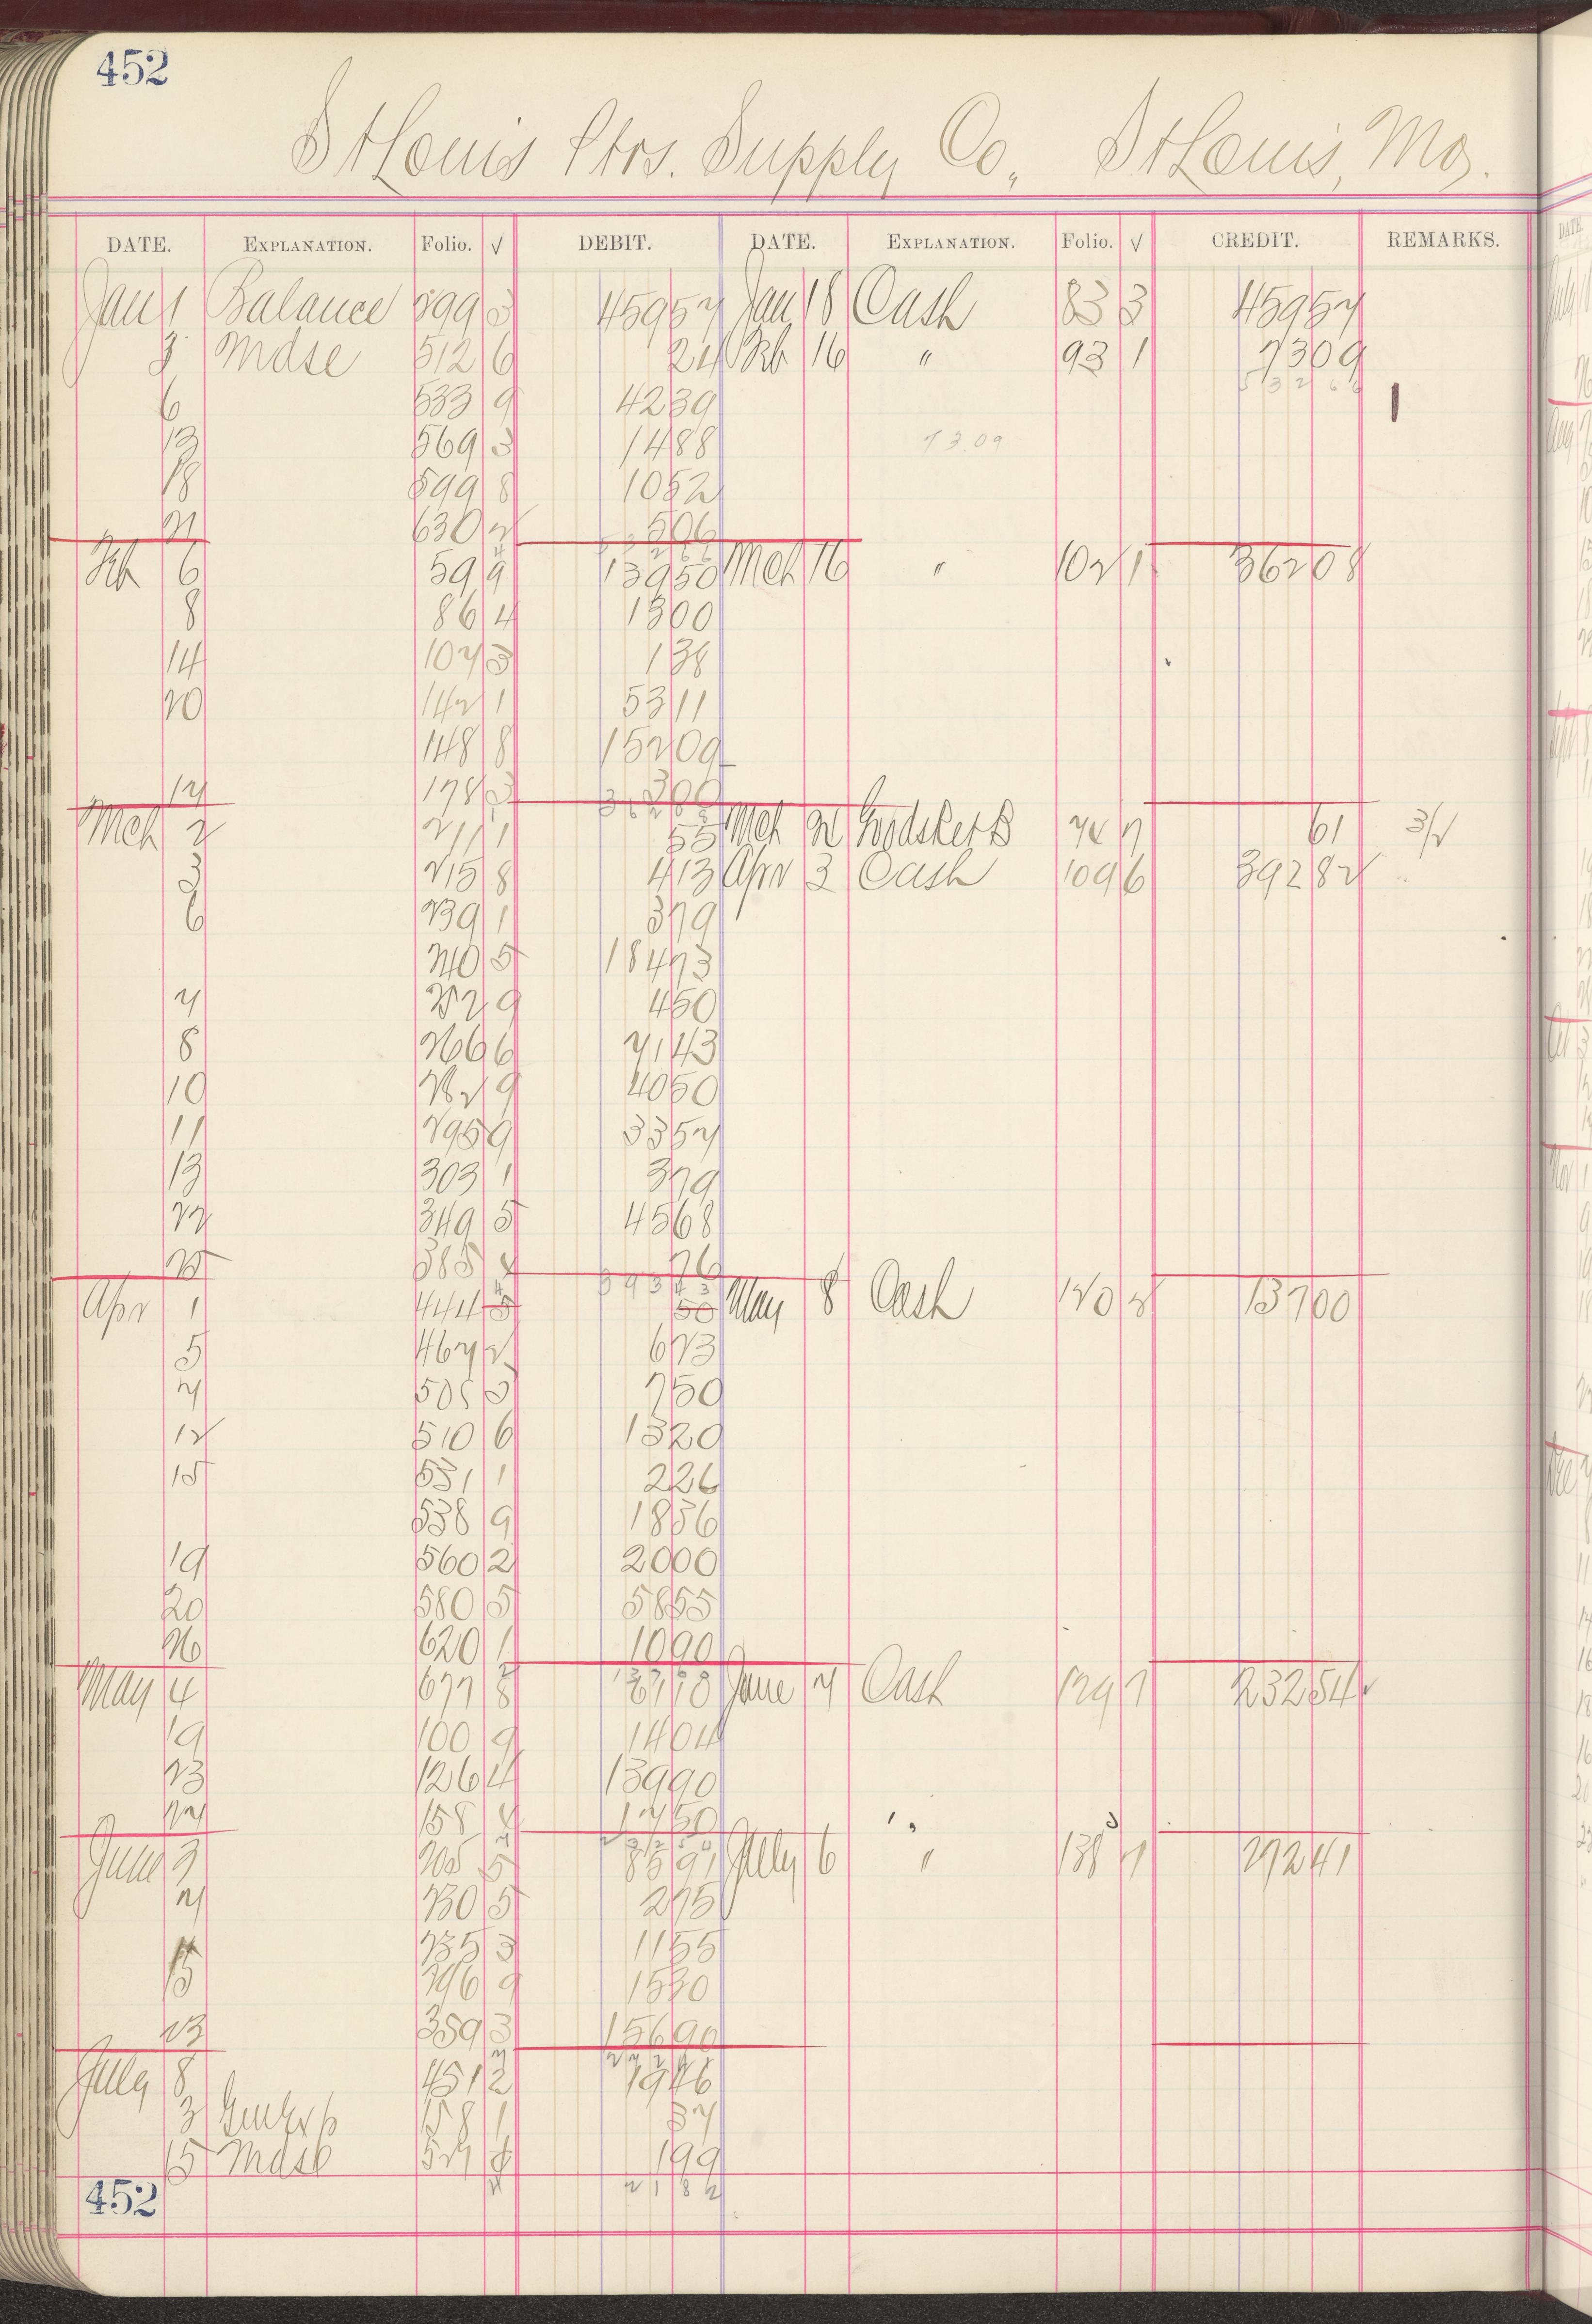 452
St Louis Ptrs. Supply Co, St Louis, Mo.
DATE. EXPLANATION. Folio. √ DEBIT. DATE. EXPLANATION. Folio. √ CREDIT. REMARKS.
Jan 1 Balance 899 3 459 57 Jan 18 Cash 83 3 459 57
3 Mdse 512 6 24 Feb 16 " 93 1 73 09
6 533 9 42 39
13 569 3 14 88 73.09
18 599 8 10 52
21 630 2 5 06
Feb 6 59 9 139 50 Mch 16 " 102 1 362 08
8 86 4 13 00
14 107 3 1 38
20 142 1 53 11
148 8 152 09
178 3 3 00
Mch 2 211 1 55 Mch 61 3/2
3 215 8 4 13 Apr 3 Cash 109 6 392 82
6 239 1 3 79
240 5 184 73
7 9 4 50
8 266 6 71 43
10 9 40 50
11 295 9 33 57
13 303 1 3 79
22 349 5 45 68
25 385 76
Apr 1 444 5 50 May 8 Cash 120 2 137 00
5 467 2 6 73
7 505 3 7 50
12 510 6 13 20
15 531 1 2 26
538 9 18 36
19 560 2 20 00
20 580 5 58 55
26 620 1 10 90
May 4 677 8 61 10 June 7 Cash 129 7 232 54
19 100 9 14 04
23 126 4 139 90
27 158 17 50
June 3 205 5 85 91 July 6 " 138 7 272 41
7 230 5 2 75
235 3 11 55
15 296 9 15 30
23 359 3 156 90
July 8 451 2 19 46
3 58 1 37
15 Mdse 1 99
21 82
452